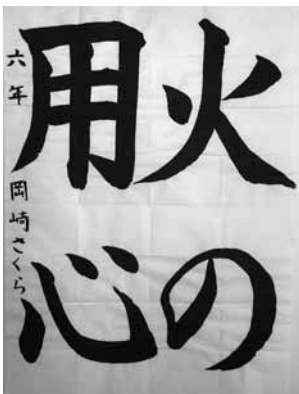 火の
用心
六年 岡崎さくら